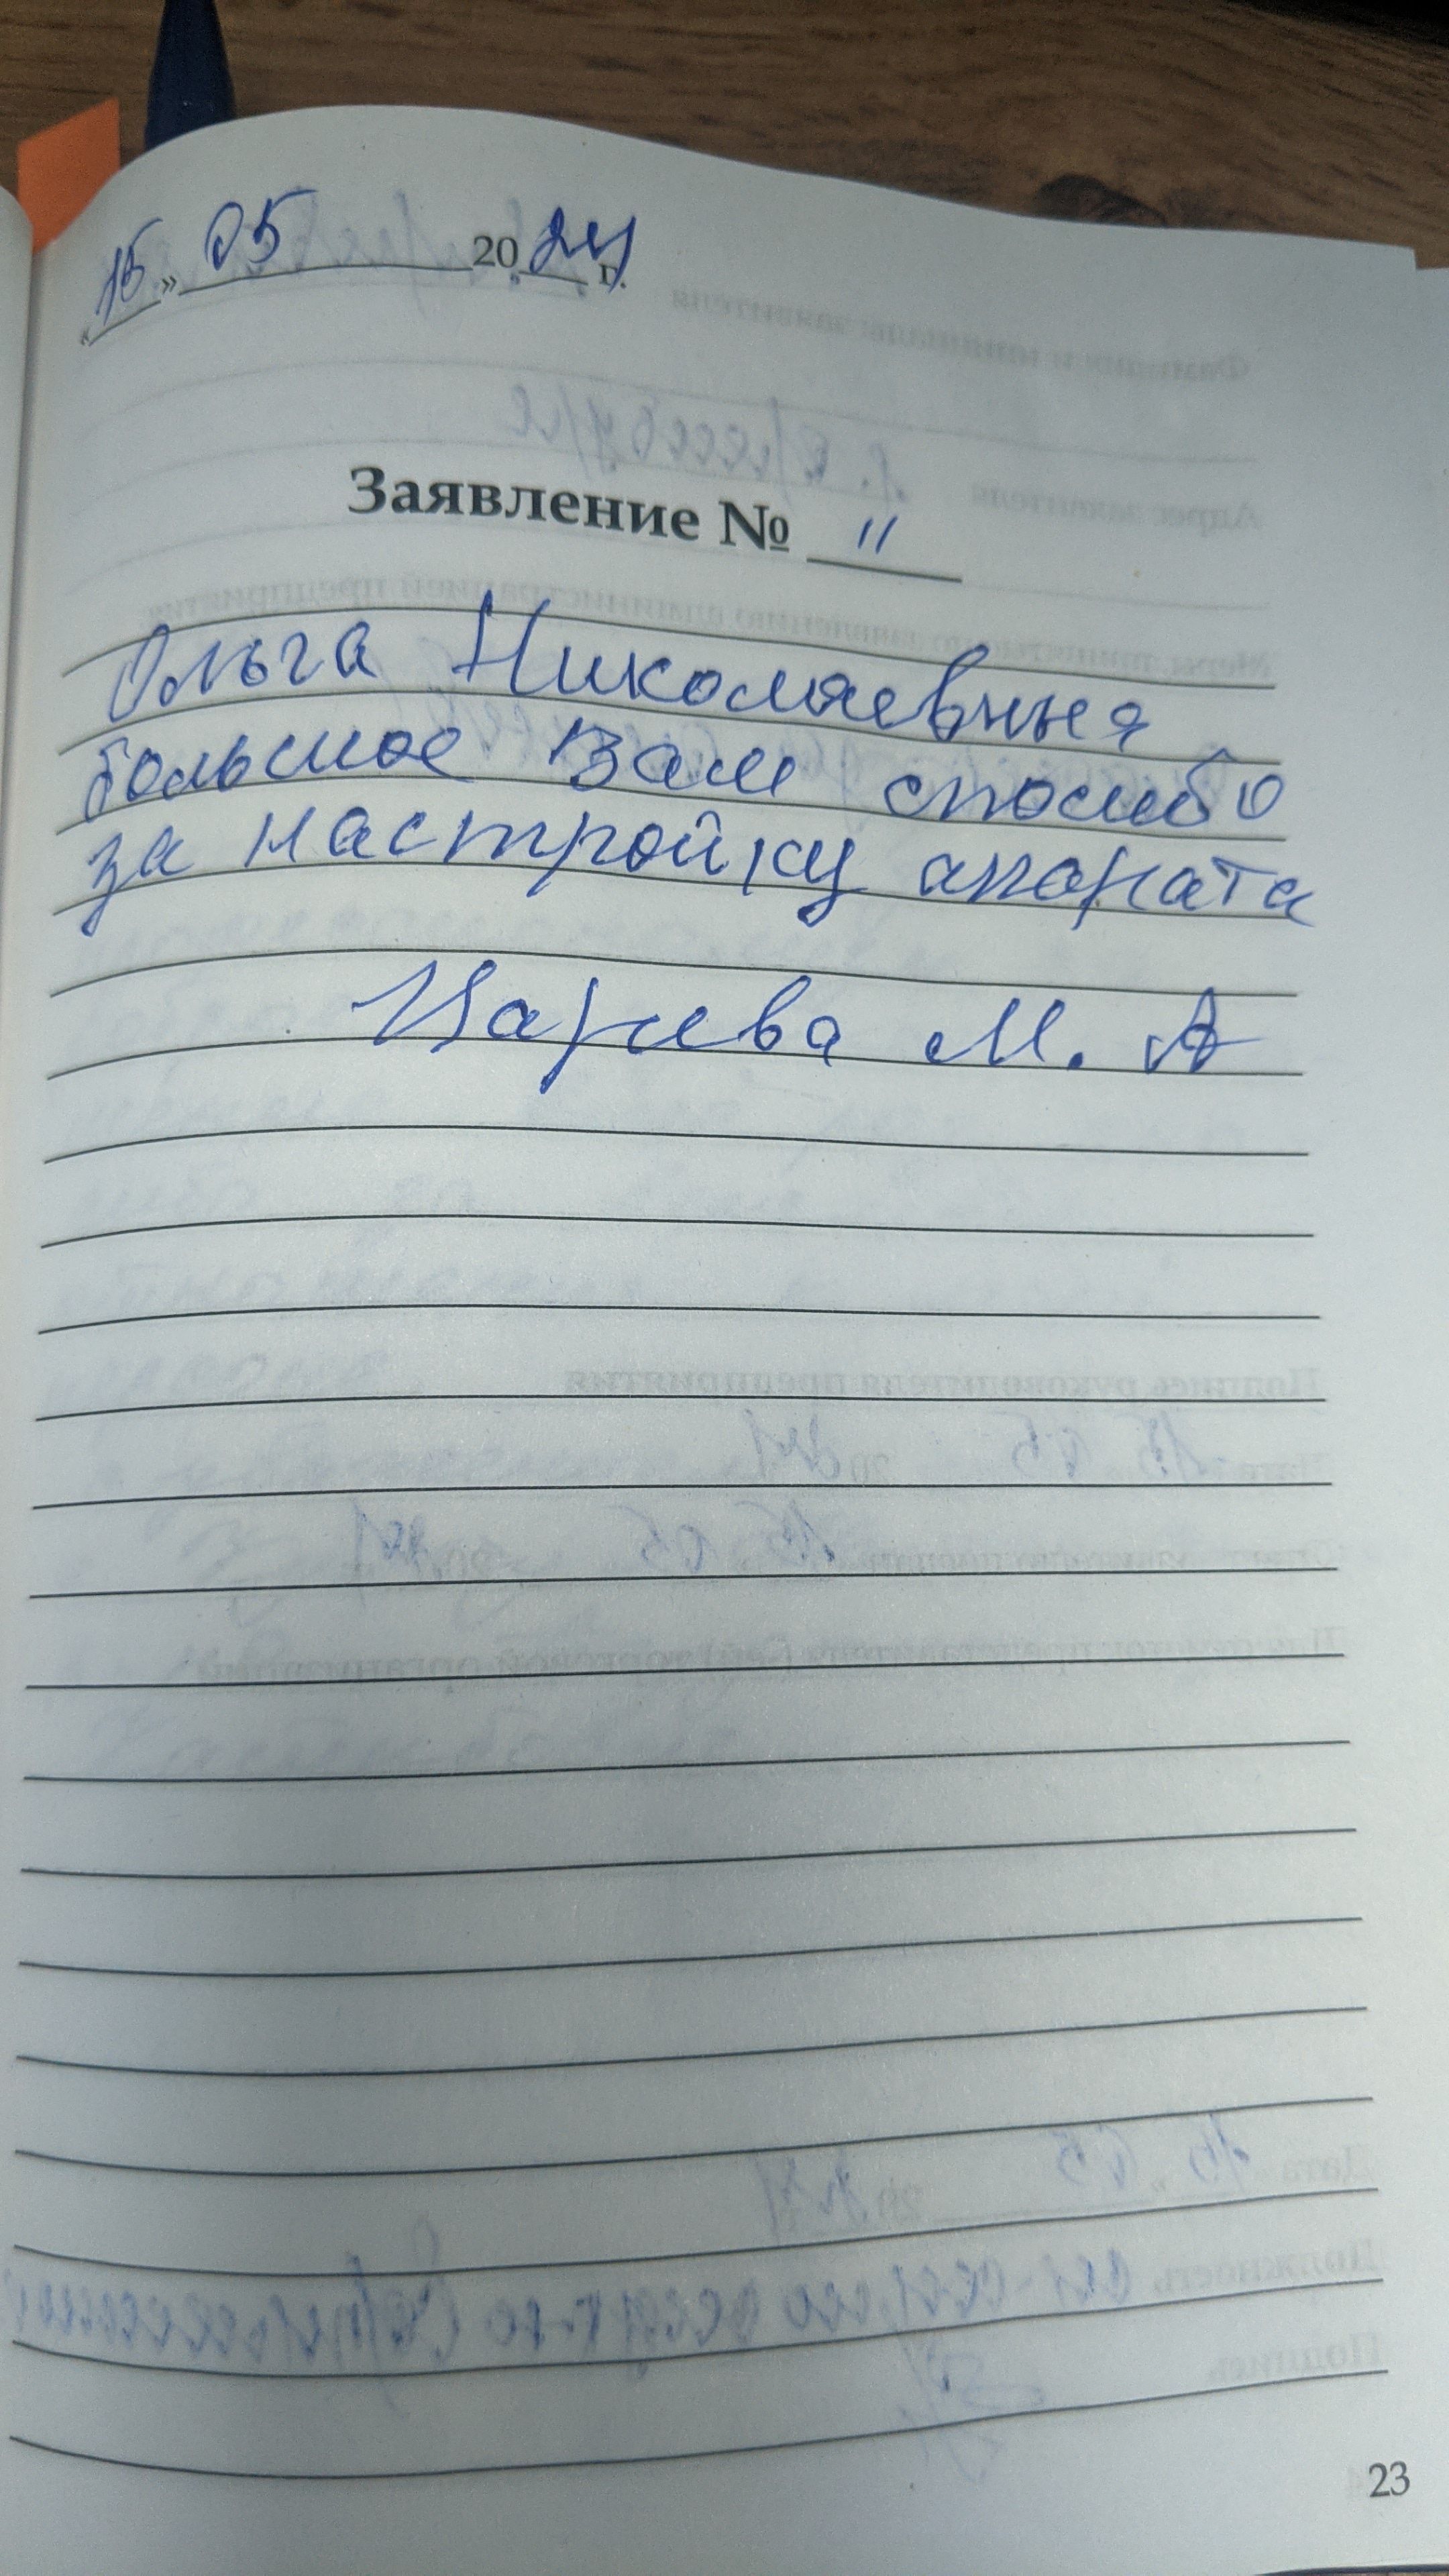 «15» 05 2024 г.
Заявление № 11
Ольга Николаевныя
большое Вам спосибо
за настройку апората
Царева М. А
23